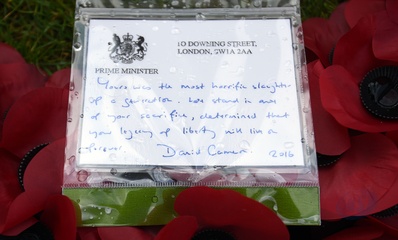 10 DOWNING STREET,
LONDON, SW1A 2AA
PRIME MINISTER
Yours was the most horrific slaughter
of a generation. We stand in awe
of your sacrifice, determined that
your legacy of liberty will live on
forever.
David Cameron 2016